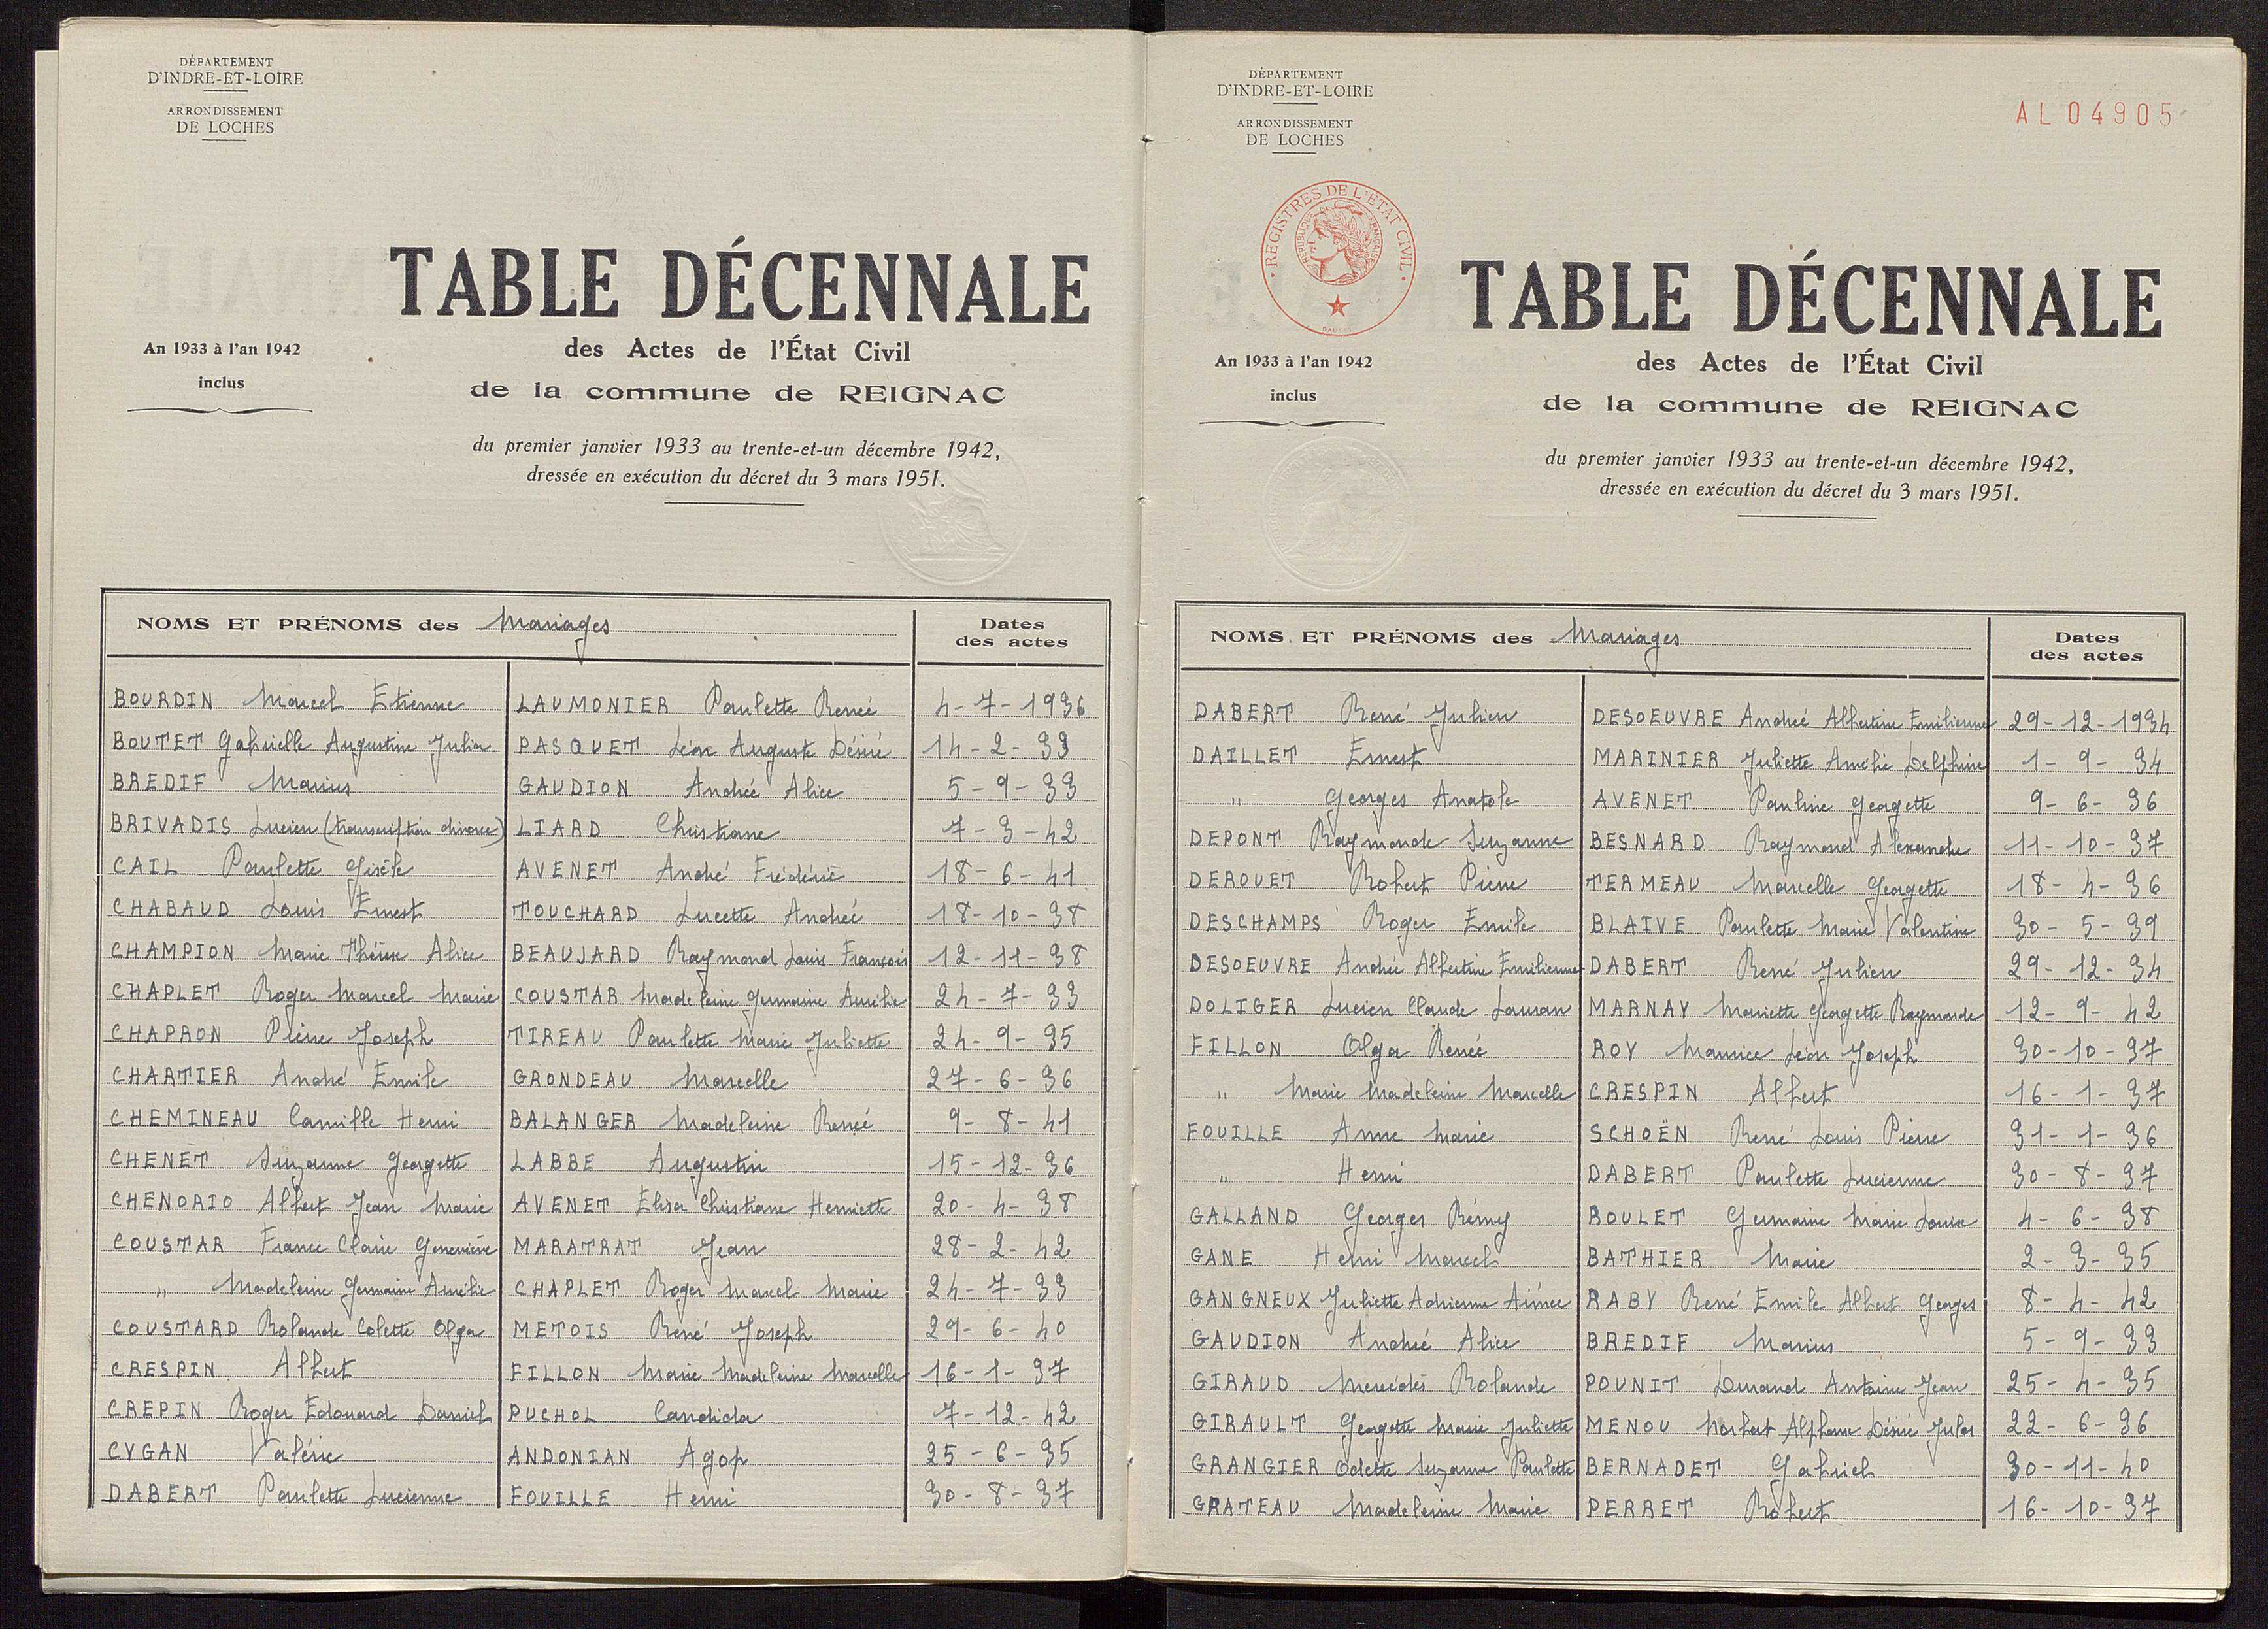 DÉPARTEMENT
D'INDRE-ET-LOIRE
ARRONDISSEMENT
DE LOCHES
TABLE DÉCENNALE
An 1933 à l'an 1942
inclus
des Actes de l'État Civil
de la commune de REIGNAC
du premier janvier 1933 au trente-et-un décembre 1942,
dressée en exécution du décret du 3 mars 1951.
NOMS ET PRÉNOMS des Mariages Dates des actes
BOURDIN Marcel Etienne LAUMONIER Paulette Renée 4-7-1936
BOUTET Gabrielle Augustine Julia PASQUET Léon Auguste Désiré 14-2-33
BREDIF Marius GAUDION Andrée Alice 5-9-33
BRIVADIS Lucien (transcription divorce) LIARD Christiane 7-3-42
CAIL Paulette Gisèle AVENET André Frédéric 18-6-41
CHABAUD Louis Ernest TOUCHARD Lucette Andrée 18-10-38
CHAMPION Marie Thérèse Alice BEAUJARD Raymond Louis François 12-11-38
CHAPLET Roger Marcel Marie COUSTAR Madeleine Germaine Amélie 24-7-33
CHAPRON Pierre Joseph TIREAU Paulette Marie Juliette 24-9-35
CHARTIER André Emile GRONDEAU Marcelle 27-6-36
CHEMINEAU Camille Henri BALANGER Madeleine Renée 9-8-41
CHENET Suzanne Georgette LABBE Augustin 15-12-36
CHENORIO Albert Jean Marie AVENET Elisa Christiane Henriette 20-4-38
COUSTAR France Claire Geneviève MARATRAT Jean 28-2-42
" Madeleine Germaine Amélie CHAPLET Roger Marcel Marie 24-7-33
COUSTARD Rolande Colette Olga METOIS René Joseph 29-6-40
CRESPIN Albert FILLON Marie Madeleine Marcelle 16-1-37
CREPIN Roger Edouard Daniel PUCHOL Candida 7-12-42
CYGAN Valérie ANDONIAN Agop 25-6-35
DABERT Paulette Lucienne FOUILLE Henri 30-8-37
DÉPARTEMENT
D'INDRE-ET-LOIRE
ARRONDISSEMENT
DE LOCHES
AL 04905
REGISTRES DE L'ETAT CIVIL
REPUBLIQUE FRANÇAISE
TABLE DÉCENNALE
An 1933 à l'an 1942
inclus
des Actes de l'État Civil
de la commune de REIGNAC
du premier janvier 1933 au trente-et-un décembre 1942,
dressée en exécution du décret du 3 mars 1951.
NOMS ET PRÉNOMS des Mariages Dates des actes
DABERT René Julien DESOEUVRE Andrée Albertine Emilienne 29-12-1934
DAILLET Ernest MARINIER Juliette Amélie Delphine 1-9-34
" Georges Anatole AVENET Pauline Georgette 9-6-36
DEPONT Raymonde Suzanne BESNARD Raymond Alexandre 11-10-37
DEROUET Robert Pierre TERMEAU Marcelle Georgette 18-4-36
DESCHAMPS Roger Emile BLAIVE Paulette Marie Valentine 30-5-39
DESOEUVRE Andrée Albertine Emilienne DABERT René Julien 29-12-34
DOLIGER Lucien Claude MARNAY Mariette Georgette Raymonde 12-9-42
FILLON Olga Renée ROY Maurice Léon Joseph 30-10-37
" Marie Madeleine Marcelle CRESPIN Albert 16-1-37
FOUILLE Anne Marie SCHOËN René Louis Pierre 31-1-36
" Henri DABERT Paulette Lucienne 30-8-37
GALLAND Georges Rémy ROULET Germaine Marie Louise 4-6-38
GANE Henri Marcel BATHIER Marie 2-3-35
GANGNEUX Juliette Adrienne Aimée RABY René Emile Albert Georges 8-4-42
GAUDION Andrée Alice BREDIF Marius 5-9-33
GIRAUD Mercédès Rolande POUNIT Durand Antoine Jean 25-4-35
GIRAULT Georgette Marie Juliette MENOU Norbert Alphonse Désiré Jules 22-6-36
GRANGIER Odette Suzanne Paulette BERNADET Gabriel 30-11-40
GRATEAU Madeleine Marie PERRET Robert 16-10-37